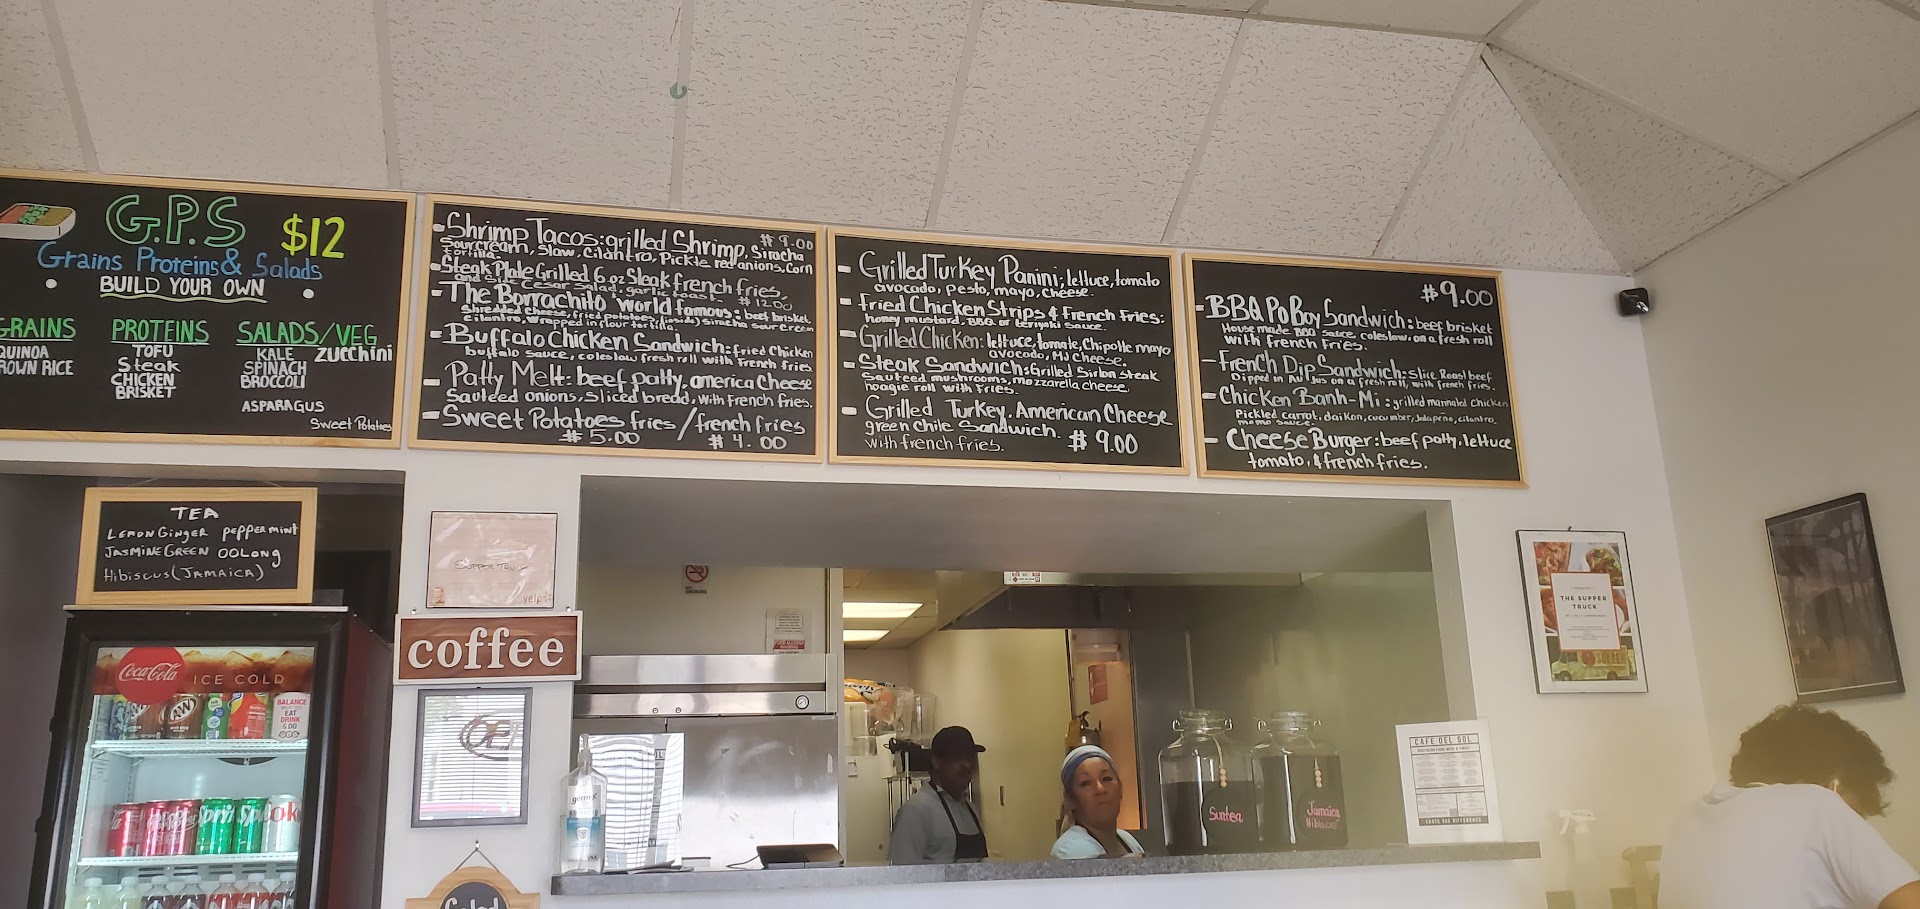 G.P.S $12
Grains Proteins & Salads
BUILD YOUR OWN
GRAINS
QUINOA
ROWN RICE
PROTEINS
TOFU
Steak
CHICKEN
BRISKET
SALADS/VEG
KALE Zucchini
SPINACH
BROCCOLI
ASPARAGUS
Sweet Potatoes
-Shrimp Tacos: grilled Shrimp, Siracha $9.00
Sour cream, Slaw, Cilantro, Pickle red onions, Corn
tortilla.
-Steak Plate Grilled 6 oz Steak french fries,
and side Cesar Salad, garlic toast. $12.00
-The Borrachito "world famous: beef brisket
Shredded cheese, fried potatoes, (inside) siracha sour cream
cilantro, wrapped in flour tortilla.
-Buffalo Chicken Sandwich: fried Chicken
buffalo sauce, coleslaw fresh roll with french fries
- Patty Melt: beef patty, america Cheese
Sauteed onions, sliced bread, with french fries.
-Sweet Potatoes fries / french fries
$5.00 $4.00
- Grilled Turkey Panini; lettuce, tomato
avocado, pesto, mayo, cheese.
- Fried Chicken Strips & French Fries:
honey mustard, BBQ or teriyaki sauce.
- Grilled Chicken: lettuce, tomate, Chipotle mayo
avocado, MJ cheese.
- Steak Sandwich: Grilled Sirlon Steak
Sauteed mushrooms, mozzarella cheese
hoagie roll with fries.
- Grilled Turkey, American Cheese
green chile Sandwich.
with french fries. $9.00
$9.00
-BBQ Po Boy Sandwich: beef brisket
House made BBQ sauce, coleslaw, on a fresh roll
with french fries.
- French Dip Sandwich: slice Roast beef
Dipped in AU Jus on a fresh roll, with french fries.
- Chicken Banh-Mi: grilled marinated chicken
Pickled carrot, daikon, cucumber, Jalapeño, cilantro.
momo sauce.
- Cheese Burger: beef patty, lettuce
tomato, & french fries.
TEA
LEMON GINGER PEPPERMINT
JASMINE GREEN OOLong
Hibiscus (JAMAICA)
SUPPER TRUCK
yelp
coffee
Coca-Cola
ICE COLD
A&W
BALANCE
EAT
DRINK
& DO
germ-x
Suntea
Jamaica
Hibiscus
THE SUPPER
TRUCK
CAFE DEL SOL
TASTE THE DIFFERENCE
Salad